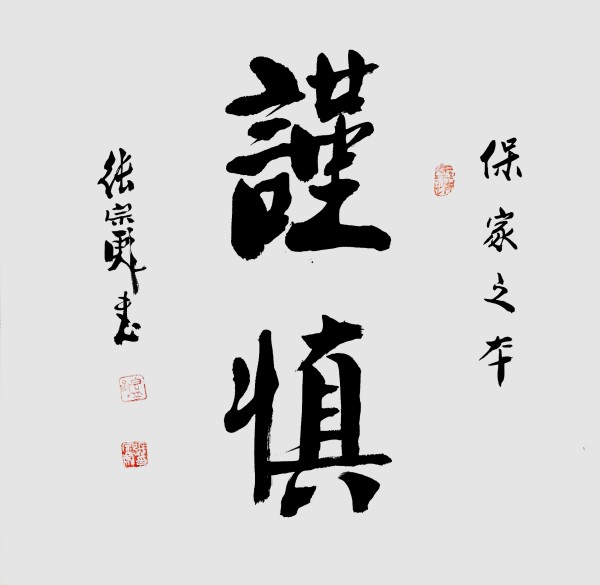 保家之本
謹慎
張宗彪書